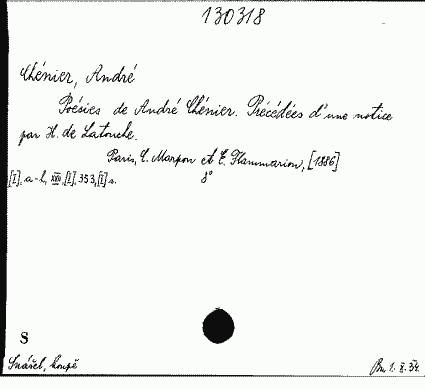 130318
Chénier, André
Poésies de André Chénier. Précédées d'une notice
par H. de Latouche.
Paris, C. Marpon et E. Flammarion, [1886]
[I], a-l, XXII, [I], 353, [I] s. 8°
S
Snášel, koupě
Bn. 1. X. 34.